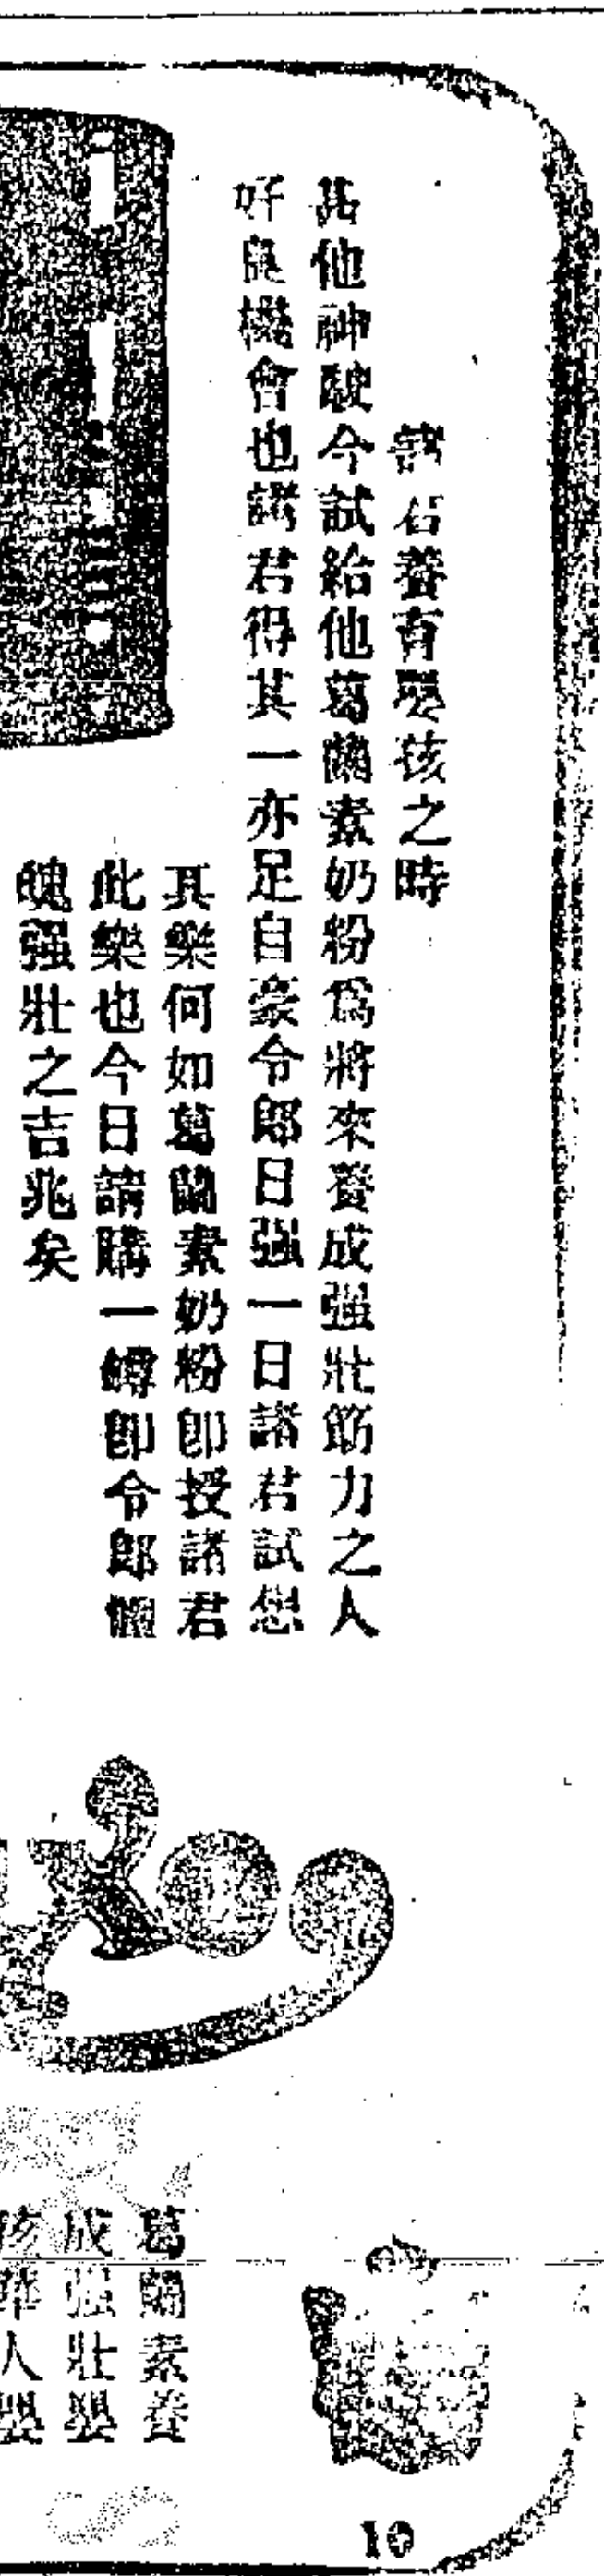 諸君養育嬰孩之時
其他神駛今試給他葛蘭素奶粉爲將來養成强壯筋力之人
好良機會也諸君得其一亦足自豪令郎日强一日諸君試想
其樂何如葛蘭素奶粉卽授諸君
此樂也今日請購一罇卽令郎
魄强壯之吉兆矣
葛蘭素養
成强壯嬰
孩華人嬰
10